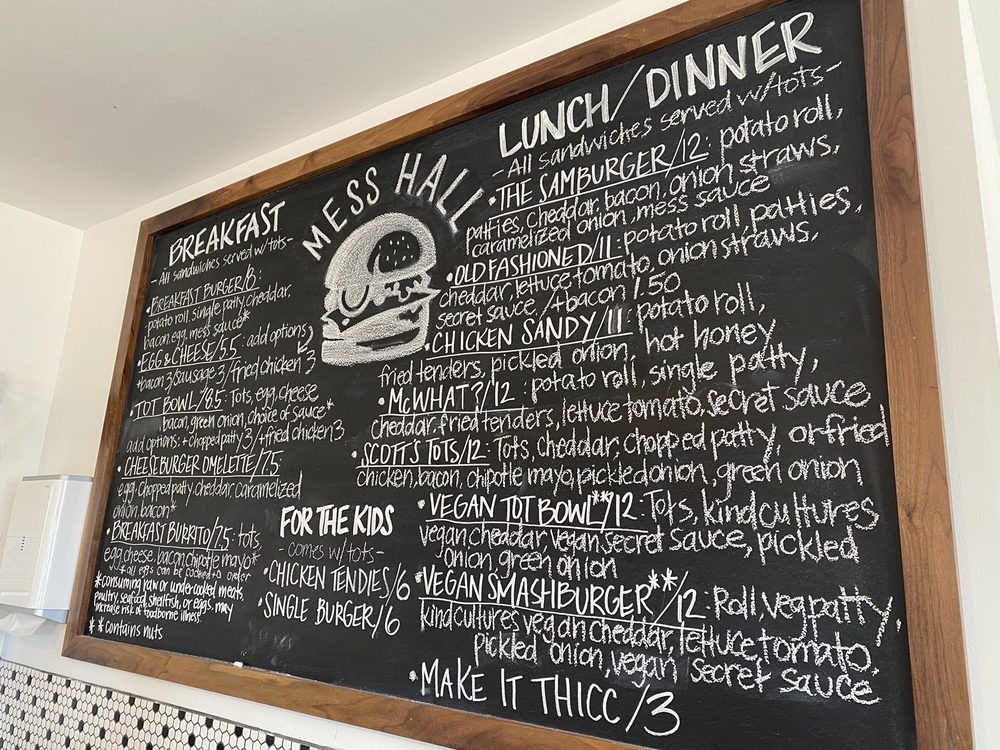 MESS HALL
BREAKFAST
- All sandwiches served w/tots -
• BREAKFAST BURGER/8:
potato roll, single patty, cheddar,
bacon, egg, mess sauce*
• EGG & CHEESE/5.5: add options
+bacon 3/sausage 3/fried chicken 3
• TOT BOWL/8.5: Tots, egg, cheese
bacon, green onion, choice of sauce*
add options: +chopped patty 3/+fried chicken 3
• CHEESEBURGER OMELETTE/7.5
egg, chopped patty, cheddar, caramelized
onion, bacon*
• BREAKFAST BURRITO/7.5: tots
egg, cheese, bacon, chipotle mayo*
*all eggs can be cooked to order
*consuming raw or undercooked meats,
poultry, seafood, shellfish, or eggs may
increase risk of foodborne illness!
** contains nuts
FOR THE KIDS
- comes w/tots -
• CHICKEN TENDIES/6
• SINGLE BURGER/6
LUNCH/DINNER
- All sandwiches served w/tots -
• THE SAMBURGER/12: potato roll,
patties, cheddar, bacon, onion straws,
caramelized onion, mess sauce
• OLD FASHIONED/11: potato roll, patties,
cheddar, lettuce, tomato, onion straws,
secret sauce /+bacon 1.50
• CHICKEN SANDY/11: potato roll,
fried tenders, pickled onion, hot honey
• McWHAT?/12: potato roll, single patty,
cheddar, fried tenders, lettuce, tomato, secret sauce
• SCOTT'S TOTS/12: Tots, cheddar, chopped patty, or fried
chicken, bacon, chipotle mayo, pickled onion, green onion
• VEGAN TOT BOWL**/12: Tots, kindcultures
vegan cheddar, vegan secret sauce, pickled
onion, green onion
• VEGAN SMASHBURGER**/12: Roll, veg patty,
kindcultures vegan cheddar, lettuce, tomato,
pickled onion, vegan secret sauce
• MAKE IT THICC/3